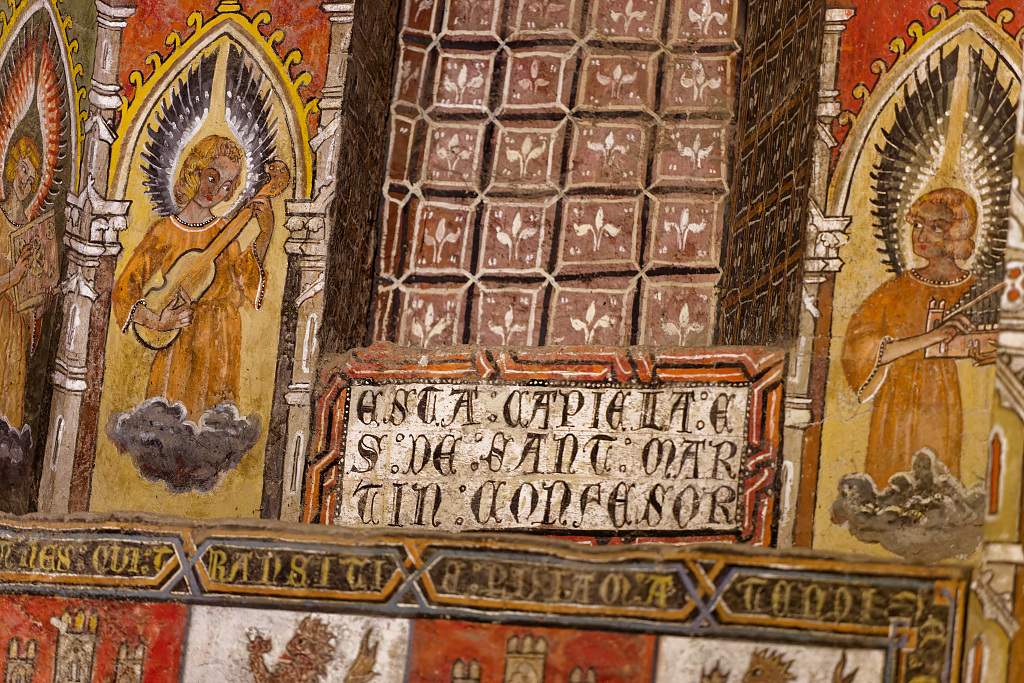 ESTA : CAPIELLA : E
S : DE : SANT : MAR
TIN : CONFESOR
NES : QUI : T RANSITI VIAM A TENDI